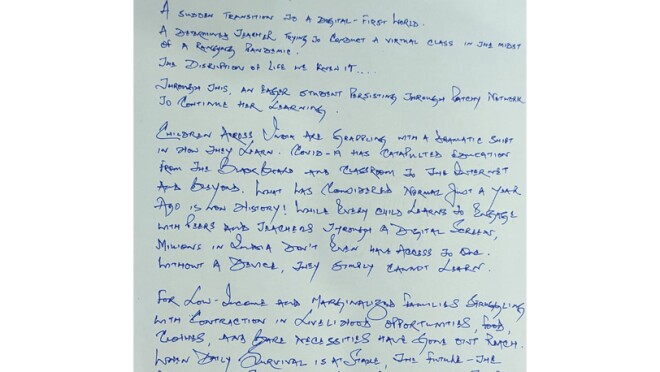 A SUDDEN TRANSITION TO A DIGITAL-FIRST WORLD.
A DETERMINED TEACHER TRYING TO CONDUCT A VIRTUAL CLASS IN THE MIDST
OF A RANGING PANDEMIC.
THE DISRPTION OF LIFE WE KNEW IT....
THROUGH THIS, AN EAGER STUDENT PERSISTING THROUGH PATCHY NETWORK
TO CONTINUE HER LEARNING.
CHILDREN ACROSS INDIA ARE GRAPPLING WITH A DRAMATIC SHIFT
IN HOW THEY LEARN. COVID-19 HAS CATAPULTED EDUCATION
FROM THE BLACKBOARD AND CLASSROOM TO THE INTERNET
AND BEYOND. WHAT WAS CONSIDERED NORMAL JUST A YEAR
AGO IS NOW HISTORY! WHILE EVERY CHILD LEARNS TO ENGAGE
WITH PEERS AND TEACHERS THROUGH A DIGITAL SCREEN,
MILLIONS IN INDIA DON'T EVEN HAVE ACCESS TO ONE.
WITHOUT A DEVICE, THEY SIMPLY CANNOT LEARN.
FOR LOW-INCOME AND MARGINALIZED FAMILIES STRUGGLING
WITH CONTRACTION IN LIVELIHOOD OPPORTUNITIES, FOOD,
CLOTHES, AND BARE NECESSITIES HAVE GONE OUT REACH.
WHEN DAILY SURVIVAL IS A STAKE, THE FUTURE-THE